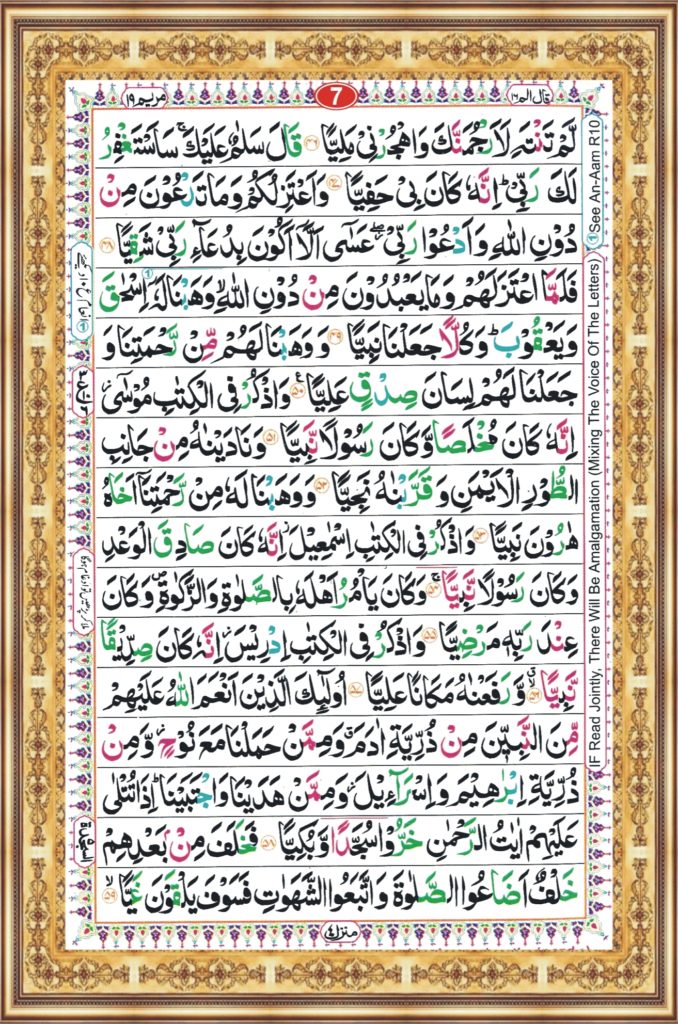 قال الم ۱۶
7
مریم ۱۹
لَمْ تَنْتَهِ لَاَرْجُمَنَّكَ وَاهْجُرْنِیْ مَلِیًّا ﴿۴۶﴾ قَالَ سَلٰمٌ عَلَیْكَ ۚ سَاَسْتَغْفِرُ
لَكَ رَبِّیْ ؕ اِنَّهٗ كَانَ بِیْ حَفِیًّا ﴿۴۷﴾ وَاَعْتَزِلُكُمْ وَمَا تَدْعُوْنَ مِنْ
دُوْنِ اللّٰهِ وَاَدْعُوْا رَبِّیْ ۖ عَسٰۤی اَلَّاۤ اَكُوْنَ بِدُعَآءِ رَبِّیْ شَقِیًّا ﴿۴۸﴾
فَلَمَّا اعْتَزَلَهُمْ وَمَا یَعْبُدُوْنَ مِنْ دُوْنِ اللّٰهِ ۙ وَهَبْنَا لَهٗۤ اِسْحٰقَ
وَیَعْقُوْبَ ؕ وَكُلًّا جَعَلْنَا نَبِیًّا ﴿۴۹﴾ وَوَهَبْنَا لَهُمْ مِّنْ رَّحْمَتِنَا وَ
جَعَلْنَا لَهُمْ لِسَانَ صِدْقٍ عَلِیًّا ﴿۵۰﴾ وَاذْكُرْ فِی الْكِتٰبِ مُوْسٰۤی ؗ
اِنَّهٗ كَانَ مُخْلَصًا وَّكَانَ رَسُوْلًا نَّبِیًّا ﴿۵۱﴾ وَنَادَیْنٰهُ مِنْ جَانِبِ
الطُّوْرِ الْاَیْمَنِ وَقَرَّبْنٰهُ نَجِیًّا ﴿۵۲﴾ وَوَهَبْنَا لَهٗ مِنْ رَّحْمَتِنَاۤ اَخَاهُ
هٰرُوْنَ نَبِیًّا ﴿۵۳﴾ وَاذْكُرْ فِی الْكِتٰبِ اِسْمٰعِیْلَ ؗ اِنَّهٗ كَانَ صَادِقَ الْوَعْدِ
وَكَانَ رَسُوْلًا نَّبِیًّا ﴿۵۴﴾ وَكَانَ یَاْمُرُ اَهْلَهٗ بِالصَّلٰوةِ وَالزَّكٰوةِ ۪ وَكَانَ
عِنْدَ رَبِّهٖ مَرْضِیًّا ﴿۵۵﴾ وَاذْكُرْ فِی الْكِتٰبِ اِدْرِیْسَ ؗ اِنَّهٗ كَانَ صِدِّیْقًا
نَّبِیًّا ﴿۵۶﴾ وَّرَفَعْنٰهُ مَكَانًا عَلِیًّا ﴿۵۷﴾ اُولٰٓئِكَ الَّذِیْنَ اَنْعَمَ اللّٰهُ عَلَیْهِمْ
مِّنَ النَّبِیّٖنَ مِنْ ذُرِّیَّةِ اٰدَمَ ۗ وَمِمَّنْ حَمَلْنَا مَعَ نُوْحٍ ؗ وَّمِنْ
ذُرِّیَّةِ اِبْرٰهِیْمَ وَاِسْرَآءِیْلَ ؗ وَمِمَّنْ هَدَیْنَا وَاجْتَبَیْنَا ؕ اِذَا تُتْلٰی
عَلَیْهِمْ اٰیٰتُ الرَّحْمٰنِ خَرُّوْا سُجَّدًا وَّبُكِیًّا ﴿۵۸﴾ فَخَلَفَ مِنْۢ بَعْدِهِمْ
خَلْفٌ اَضَاعُوا الصَّلٰوةَ وَاتَّبَعُوا الشَّهَوٰتِ فَسَوْفَ یَلْقَوْنَ غَیًّا ﴿۵۹﴾
السجدة
منزل ۴
IF Read Jointly, There Will Be Amalgamation (Mixing The Voice Of The Letters) ① See An-Aam R10